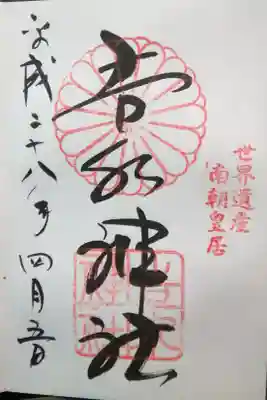 世界遺産
南朝皇居
吉水神社
平成二十八年四月五日